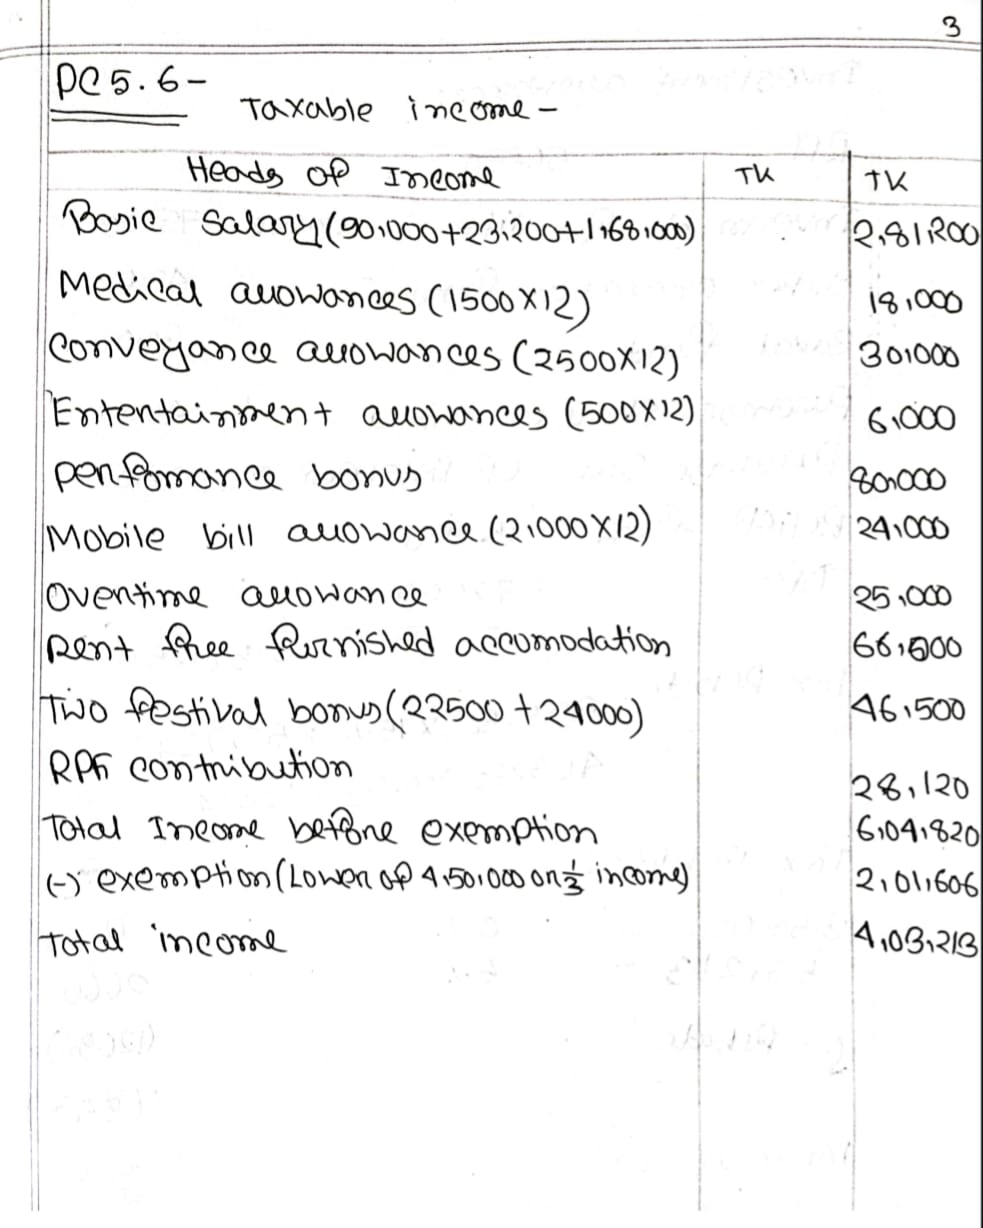 3
PC 5.6-
Taxable income -
Heads of Income TK TK
Basic Salary (90,000+23,200+1,68,000) 2,81,200
Medical allowances (1500X12) 18,000
Conveyance allowances (2500X12) 30,000
Ententainment allowances (500X12) 6,000
Perfomance bonus 80,000
Mobile bill allowance (2,000X12) 24,000
Overtime allowance 25,000
Rent free furnished accomodation 66,000
Two festival bonus (22500 + 24000) 46,500
RPF contribution 28,120
Total Income before exemption 6,04,820
(-) exemption (Lower of 4,50,000 or ⅓ income) 2,01,606
Total income 4,03,213